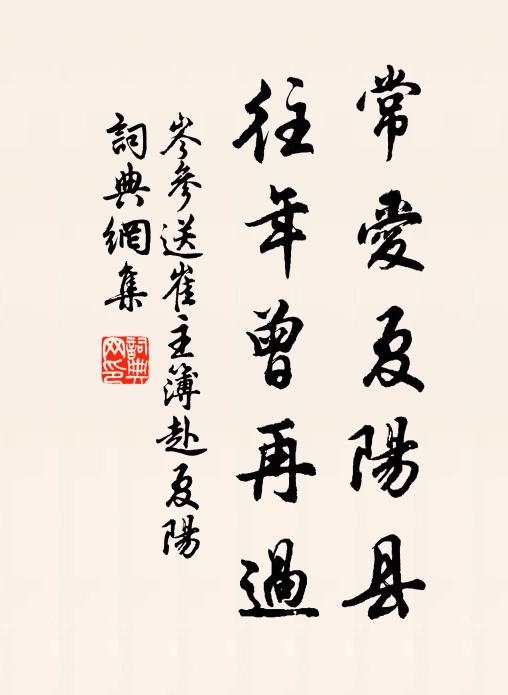 常愛夏陽县
往年曾再過
岑參送崔主簿赴夏陽
詞典網集
詞典网印